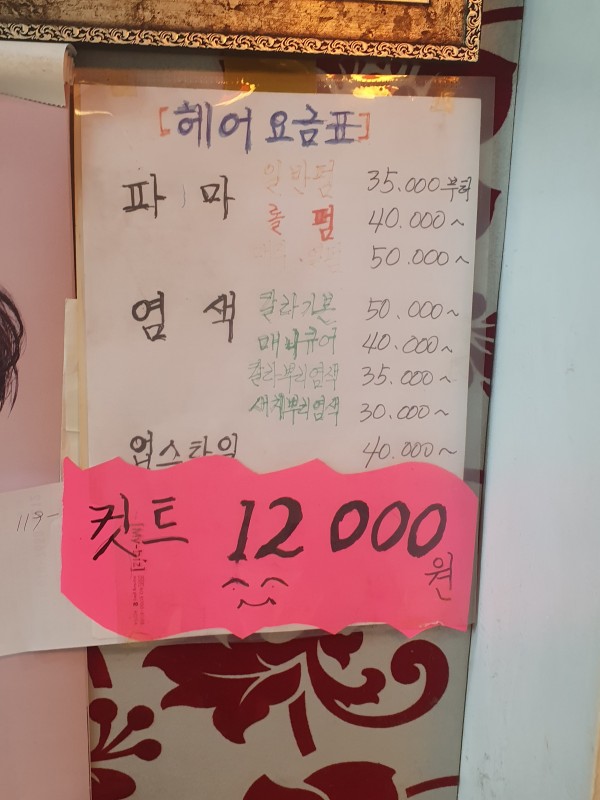 [헤어요금표]
파 마 일반펌 35.000부터
롤 펌 40.000~
50.000~
염 색 칼라기본 50.000~
매니큐어 40.000~
칼라-뿌리염색 35.000~
새치뿌리염색 30.000~
업스타일 40.000~
119-
컷트 12000원